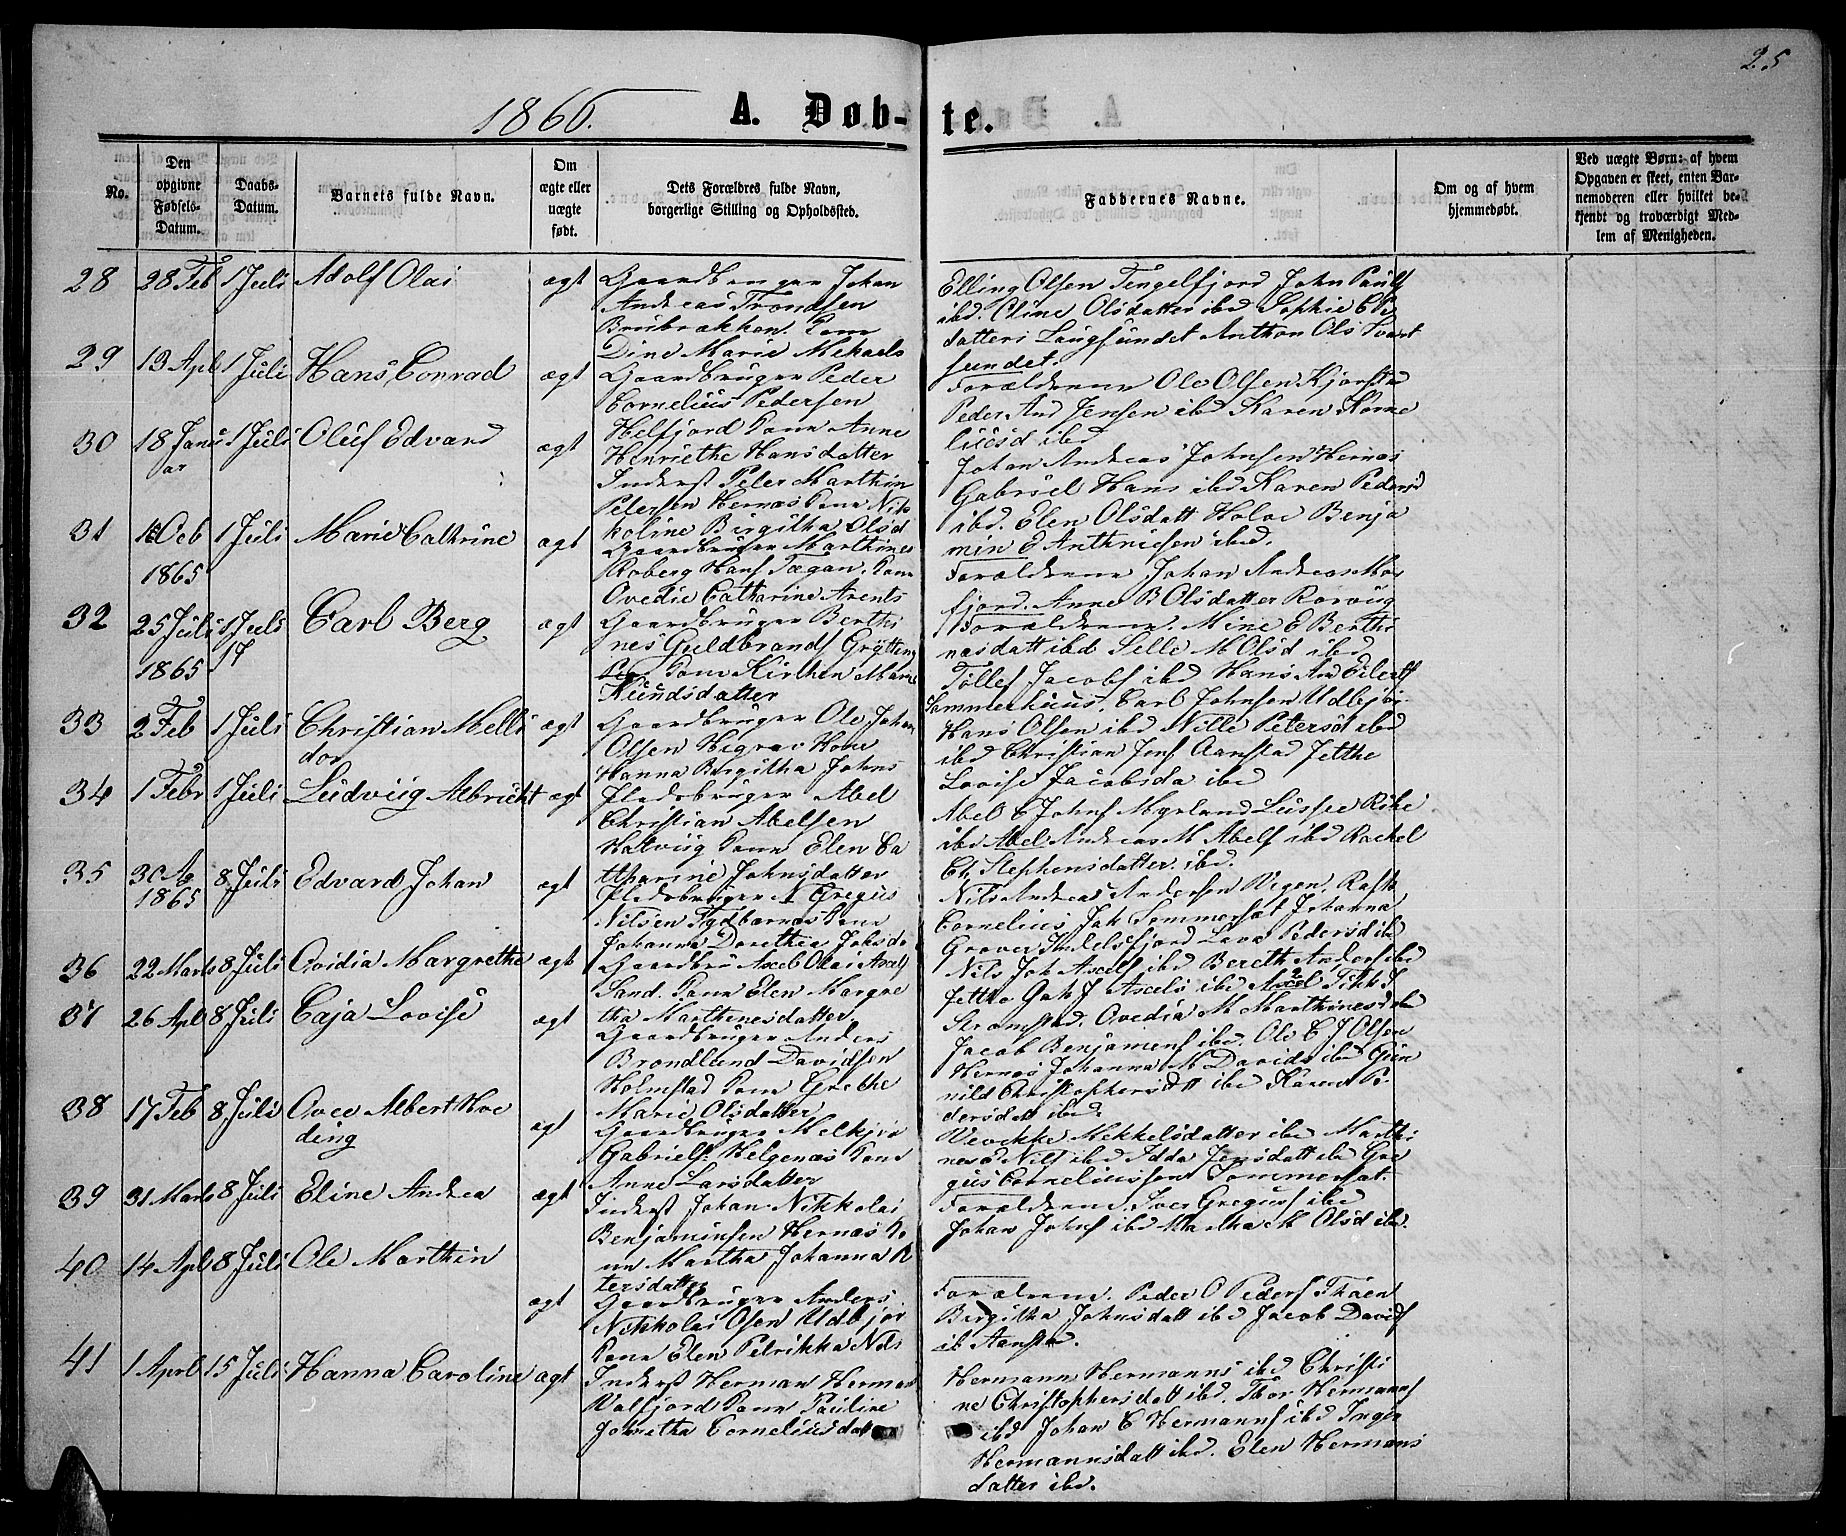 25
1866. A. Døb-te.
No.
Den opgivne Fødsels-Datum.
Daabs-Datum.
Barnets fulde Navn.
Om ægte eller uægte født.
Dets Forældres fulde Navn, borgerlige Stilling og Opholdssted.
Faddernes Navne.
Om og af hvem hjemmedøbt.
Ved uægte Børn: af hvem Opgaven er skeet, enten Bar-nemoderen eller hvilket be-kjendt og troværdigt Med-lem af Menigheden.
28 28 Feb 1 Juli Adolf Olai ægt
Gaardbruger Johan
Andreas Trondsen
Brubrækken. Kone
Dine Marie Mekaels
Elling Olsen Tengelfjord John Pauls
ibd. Eline Olsdatter ibd Sophie
datter Langsundet Anthon Ols
sundet.
29 13 Apl 1 Juli Hans Conrad ægt
Gaardbruger Peder
Cornelius Pedersen
Helfjord Kone Anne
Henriethe Hansdatter
Forældrene Ole Olsen Kjørstad
Peder And Jensen ibd Karen Korne
liusd ibd
30 18 Janu 1 Juli Oluf Edvard ægt
ar
Inderst Peter Marthin
Petersen Hernæs Kone Nik
koline Birgitha Olsd
Johan Andreas Johnsen Hernæs
Gabriel Hans ibd Karen Pedersd
ibd. Elen Olsdatt Holoe Benja
min E Anthnisen ibd.
31 Ocb 1 Juli Marie Cathrine ægt
1865
Gaardbruger Marthines
Roberg Hans Kone
Ovedie Catharine Arents
Forældrene Johan Andreas
fjord. Anne B Olsdatter Rørvig
32 25 Juli 1 Juli Carl Berg ægt
1865 17
Gaardbruger Berthi
nes Guldbrands Grytting
Kone Kirsten Marie
Knudsdatter
Forældrene Mine E Berthi
nesdatt ibd Sille M Olsd ibd
Tollef Jacobs ibd Hans And Eilerts
Sommerhuus. Carl Johnsen Udbjør
33 2 Feb 1 Juli Christian Melli ægt
dor
Gaardbruger Ole Johan
Olsen Higrav Kone
Hanna Birgitha Johns
Hans Olsen ibd Nille Petersdt ibd
ibd Christian Jens Aanstad Jetthe
Lovise Jacobsda ibd
34 1 Febr 1 Juli Ludviig Albricht ægt
Pladsbruger Abel
Christian Abelsen
Hatviig Kone Elen Ca
tharine Johnsdatter
Abel C Johns Myrland
ibd Abel Andreas M Abels ibd Rachel
Ch Stephensdatter ibd.
35 30 1865 8 Juli Edvard Johan ægt
Pladsbruger N Gregus
Nilsen Kone
Johanna Dorethea Johsda
Nils Andreas Andersen Vigen.
Cornelius Joh Sommersæt Johanna
Grøver Indelsfjord Lava Pedersd ibd
36 22 Marts 8 Juli Ovidia Margrethe ægt
Gaardbru Axcel Olai Axcels
Sand. Kone Elen Margre
tha Marthenesdatter
Nils Joh Axcels ibd Bereth Anders ibd
Strømstad. Ovedia M Marthinesd ibd
37 26 Apl 8 Juli Caja Lovise ægt
Gaardbruger Anders
Brondlund Davidsen
Holmstad Kone Grethe
Marie Olsdatter
Jacob Benjamens ibd. Ole C J Olsen
Hernæs Johanna M Davids ibd Gün
nild Christophersdtt ibd Karen Pe
dersdatt ibd.
38 17 Feb 8 Juli Ovee Albert Hve ægt
ding
Gaardbruger Melkjør
Gabriels Helgenæs Kone
Anne Larsdatter
Wevikke Mekkelsdatter ibd Marthi
nesd Nils ibd Idda Jensdatt ibd Gre
gus Corneliussen Sommersæt.
39 31 Marts 8 Juli Eline Andrea ægt
Inderst Johan Nikkolai
Benjaminsen Hernæs Ko
ne Martha Johanna Pe
tersdatter
Forældrene. Iver Gregus ibd
Johan Johns ibd Martha M Olsd ibd.
40 14 Apl 8 Juli Ole Marthin ægt
Gaardbruger Anders
Nikkolai Olsen Udbjør
Kone Elen Petrikka Nils
Forældrene. Peder O Peders
Birgitha Johnsdatt ibd Jacob Davids
Aanstad.
41 1 Aprl 15 Juli Hanna Caroline ægt
Inderst Herman Herman
Valfjord Kone Pauline
Johretha Corneliusdatt
Hermann Hermanns ibd Christi
ne Christophersdatt ibd. Thor Hermanns
ibd Johan C Hermanns ibd Inger
Hermannsdatt ibd. Elen Hermans
datter ibd.